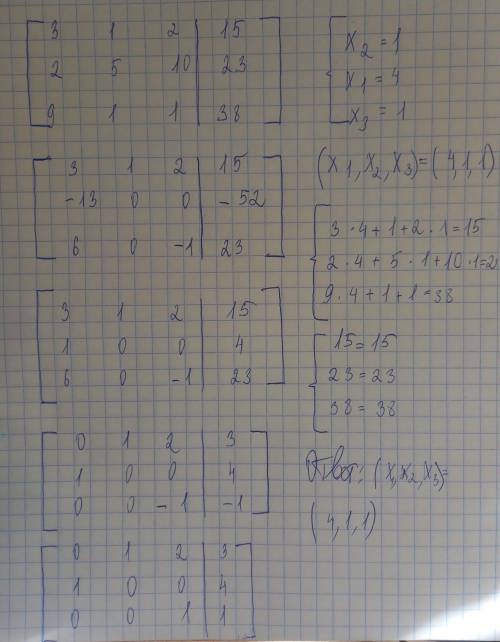 3 1 2 | 15
2 5 10 | 23
9 1 1 | 38
3 1 2 | 15
-13 0 0 | -52
6 0 -1 | 23
3 1 2 | 15
1 0 0 | 4
6 0 -1 | 23
0 1 2 | 3
1 0 0 | 4
0 0 -1 | -1
0 1 2 | 3
1 0 0 | 4
0 0 1 | 1
x₂ = 1
x₁ = 4
x₃ = 1
(x₁, x₂, x₃) = (4, 1, 1)
3 · 4 + 1 + 2 · 1 = 15
2 · 4 + 5 · 1 + 10 · 1 = 2
9 · 4 + 1 + 1 = 38
15 = 15
23 = 23
38 = 38
Ответ: (x, x₂, x₃) =
(4, 1, 1)